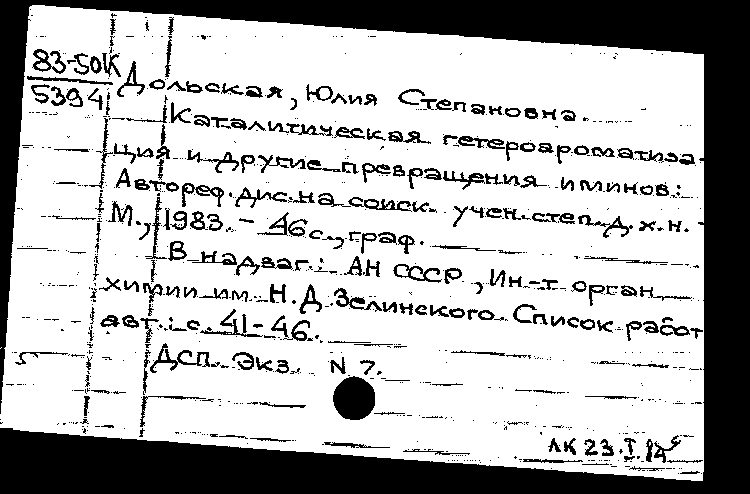 83-50К
5394
Дольская, Юлия Степановна.
Каталитическая гетероароматиза-
ция и другие превращения иминов:
Автореф. дис. на соиск. учен. степ. д. х. н. -
М., 1983. - 46 с., граф.
В надзаг.: АН СССР, Ин-т орган.
химии им. Н.Д. Зелинского. Список работ
авт.: с. 41-46.
ДСП. Экз. N 7.
ЛК 23.I.84